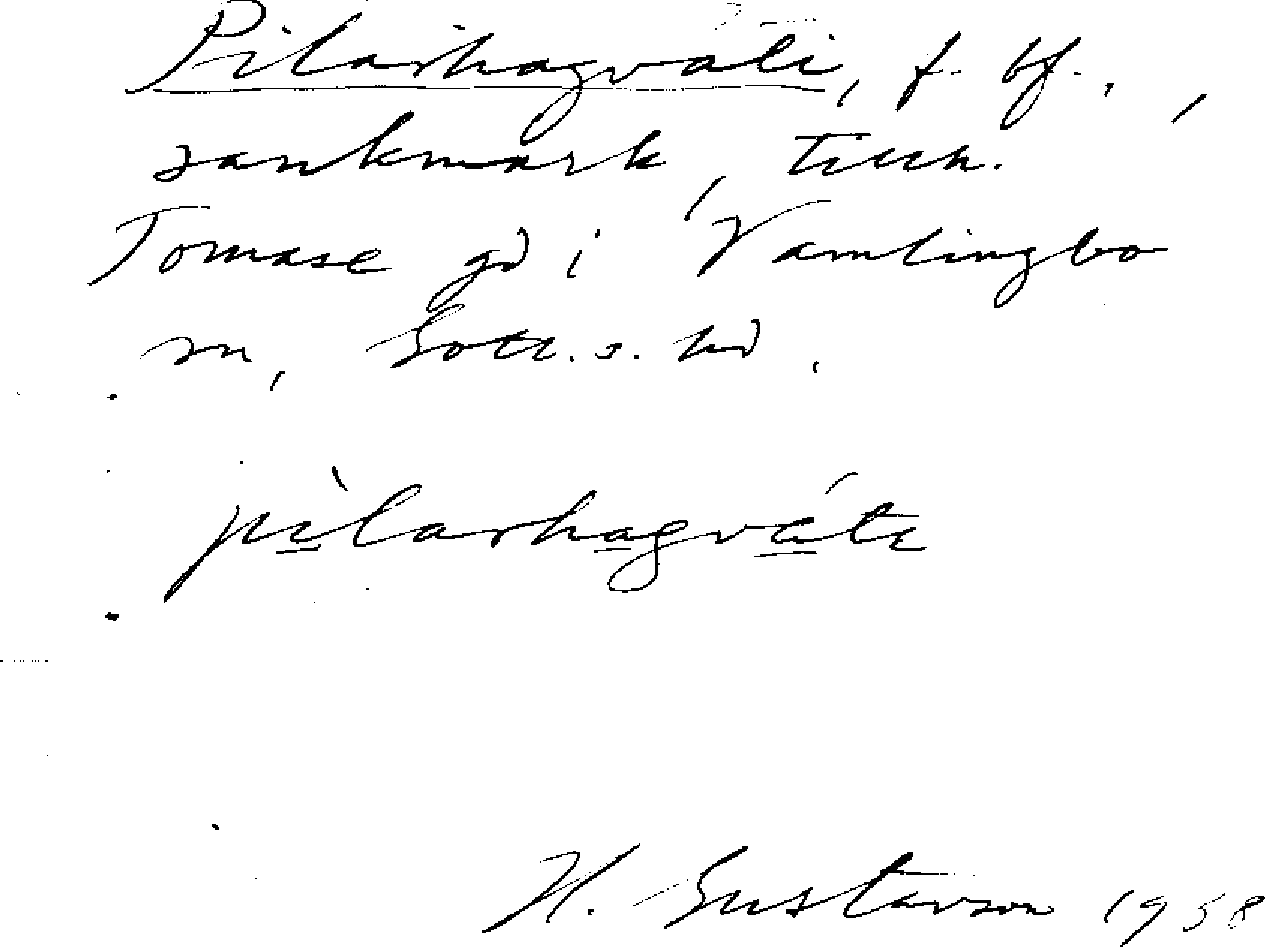 Pilarhagväti, f. bf.,
sankmark, tillh.
Tomase gd i Vamlingbo
sn, Gotl. s. hd.
pilarhagväte
H. Gustavson 1958